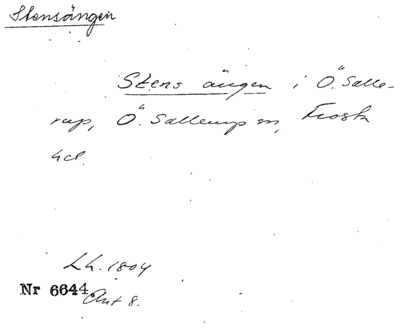 Stensängen
Stens ängen i Ö. Salle-
rup, Ö. Sallerup sn, Frosta
hd.
Lh. 1804
Nr 6644 Akt 8.